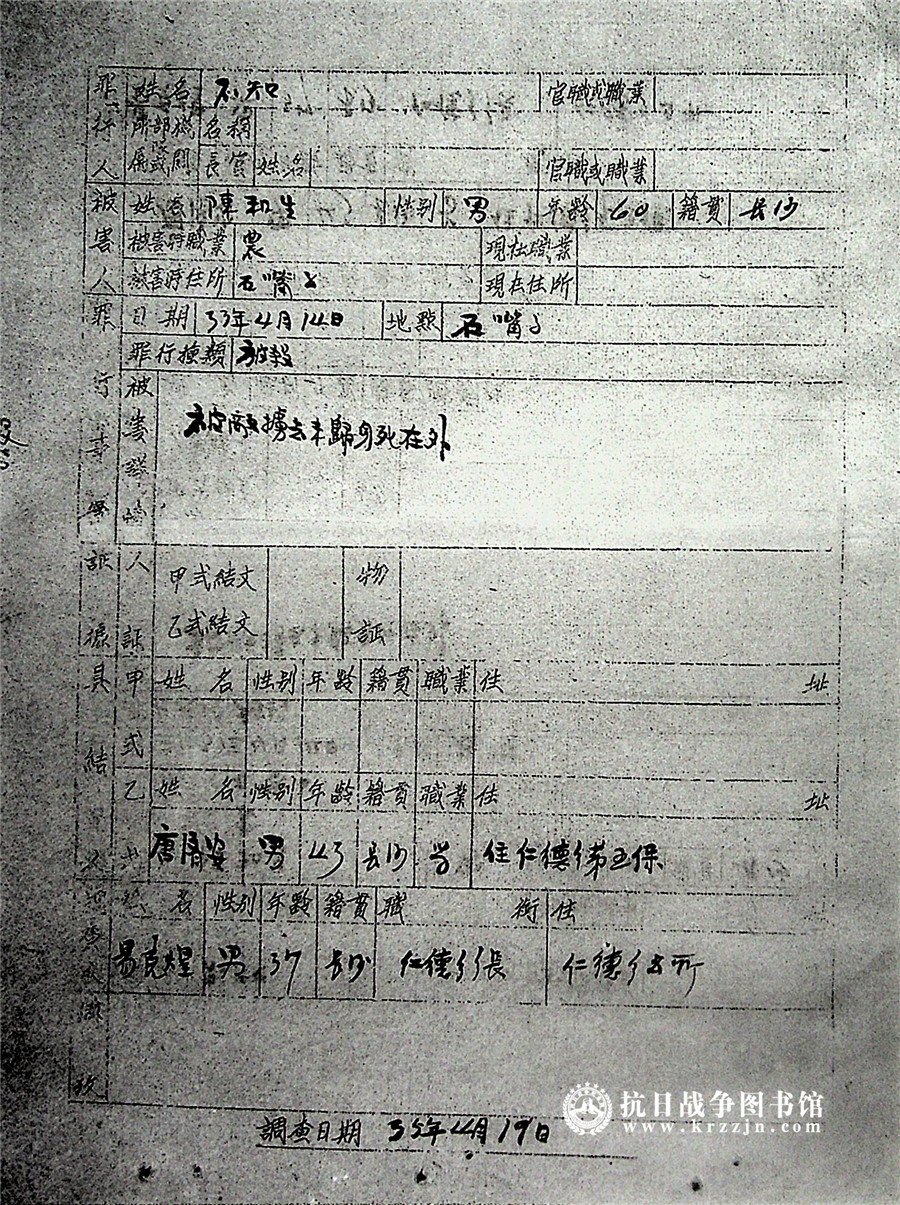 罪行人 姓名 不知 官職或職業
所部機 名稱
屬或關 長官 姓名 官職或職業
被害人 姓名 陳和生 性别 男 年齡 60 籍貫 長沙
被害時職業 農 現在職業
被害時住所 石嘴 現在住所
罪行事實 日期 33年4月14日 地點 石嘴
罪行種類
被害詳情
被敵擄去未歸身死在外
証據 人証 甲式結文 物証
乙式結文
具結 甲式 姓名 性别 年齡 籍貫 職業 住址
乙 姓名 性别 年齡 籍貫 職業 住址
唐 男 43 長沙 住仁德鄉第五保
名 性别 年齡 籍貫 職銜 住
易克煌 男 37 長沙 仁德鄉長 仁德鄉公所
調查日期 35年4月19日
抗日战争图书馆
www.krzzjn.com